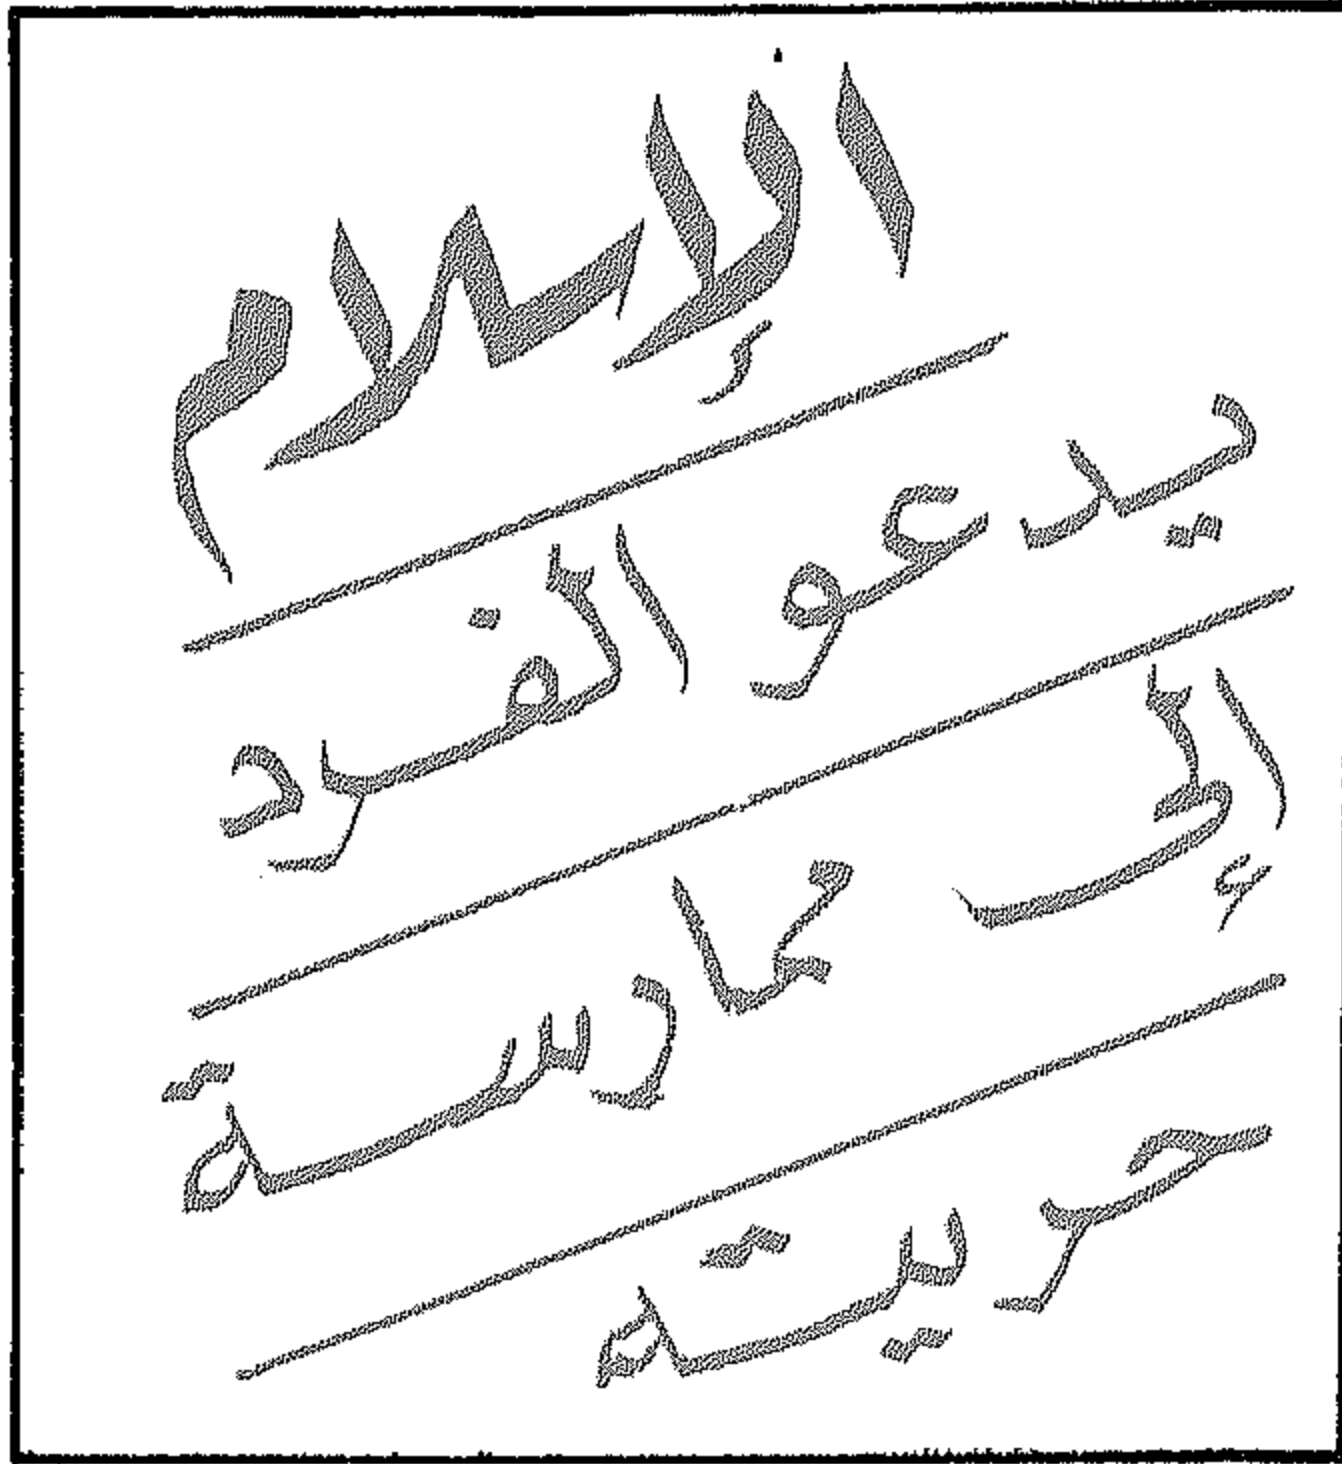 الإسلام
يدعو الفرد
إلى ممارسة
حريته